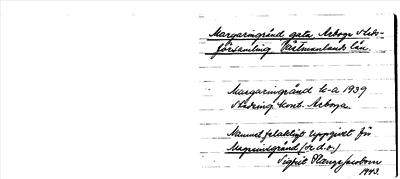 Margaringränd, gata, Arboga stads-
församling Västmanlands län.
Margaringränd k-a 1939
Ändring kont. Arboga.
Namnet felaktigt uppgivet för
Magasinsgränd (se d.o.)
Sigfrid Hongslo
1943.